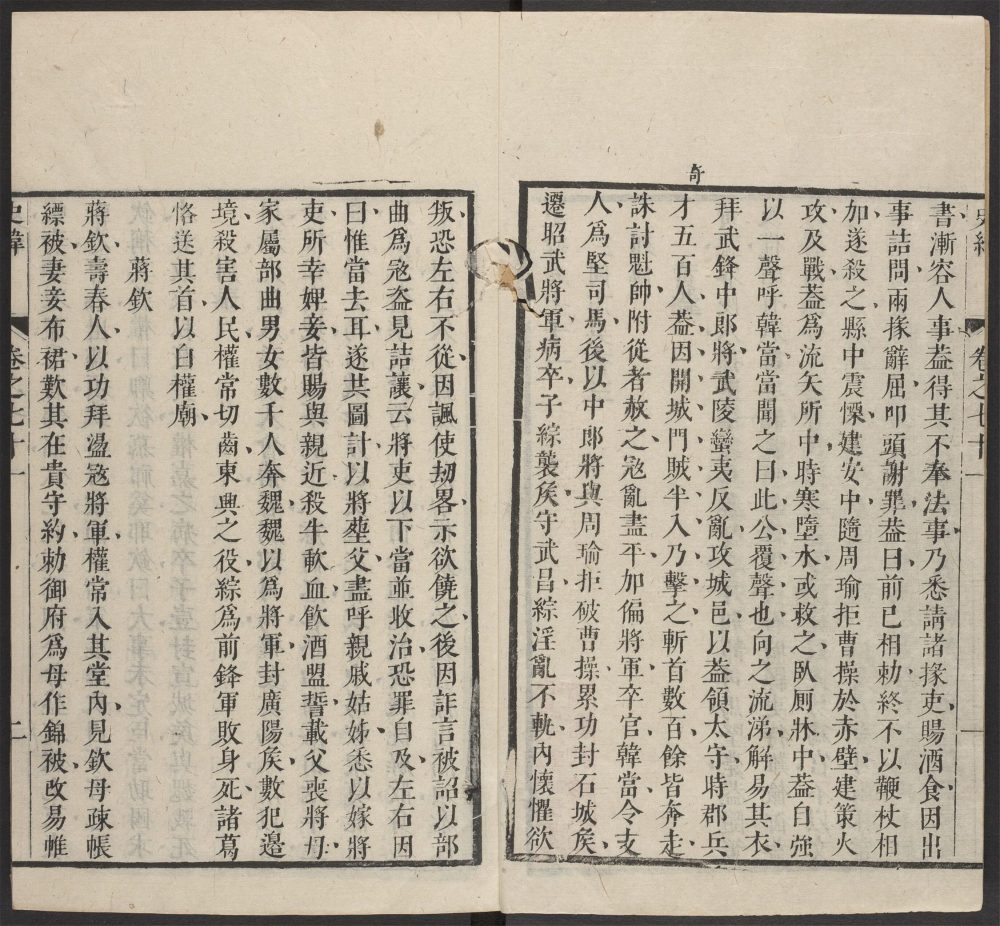 卷之七十一
一
奇
書漸容人事葢得其不奉法事乃悉請諸掾吏賜酒食因出
事詰問兩掾辭屈叩頭謝罪葢曰前已相勅終不以鞭杖相
加遂殺之縣中震慄建安中隨周瑜拒曹操於赤壁建策火
攻及戰葢爲流矢所中時寒墮水或救之臥厠牀中葢自強
以一聲呼韓當當聞之曰此公覆聲也向之流涕解易其衣
拜武鋒中郎將武陵蠻夷反亂攻城邑以葢領太守時郡兵
才五百人葢因開城門賊半入乃擊之斬首數百餘皆奔走
誅討魁帥附從者赦之寇亂盡平加偏將軍卒官韓當令支
人爲堅司馬後以中郎將與周瑜拒破曹操累功封石城矦
遷昭武將軍病卒子綜襲矦守武昌綜淫亂不軌內懷懼欲
叛恐左右不從因諷使刼畧示欲饒之後因詐言被詔以部
曲爲寇盜見詰讓云將吏以下當並收治恐罪自及左右因
曰惟當去耳遂共圖計以將塟父盡呼親戚姑姊悉以嫁將
吏所幸婢妾皆賜與親近殺牛歃血飮酒盟誓載父喪將母
家屬部曲男女數千人奔魏魏以爲將軍封廣陽矦數犯邉
境殺害人民權常切齒東興之役綜爲前鋒軍敗身死諸葛
恪送其首以白權廟
蔣欽
蔣欽壽春人以功拜盪寇將軍權常入其堂內見欽母疎帳
縹被妻妾布裙歎其在貴守約勅御府爲母作錦被攺易帷
史緯
卷之七十一
二